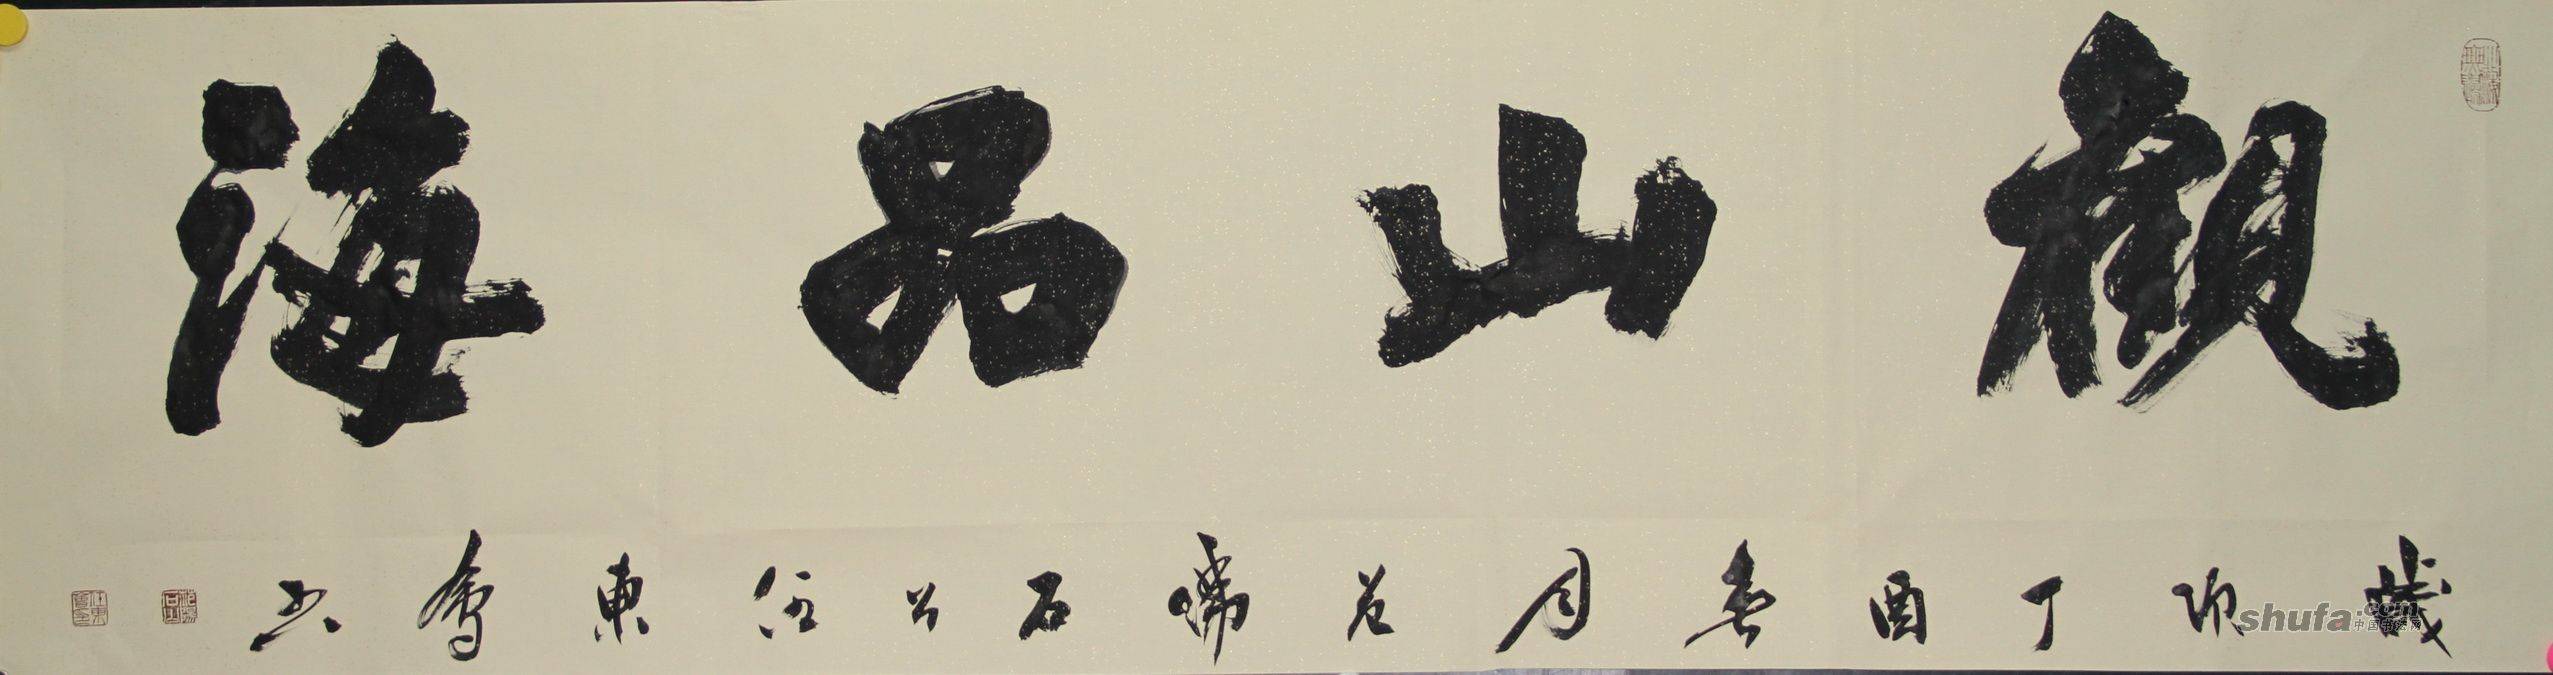 觀山品海
歲次丁酉春月於瑞石公任東奮書
shufa.com
中国书法网